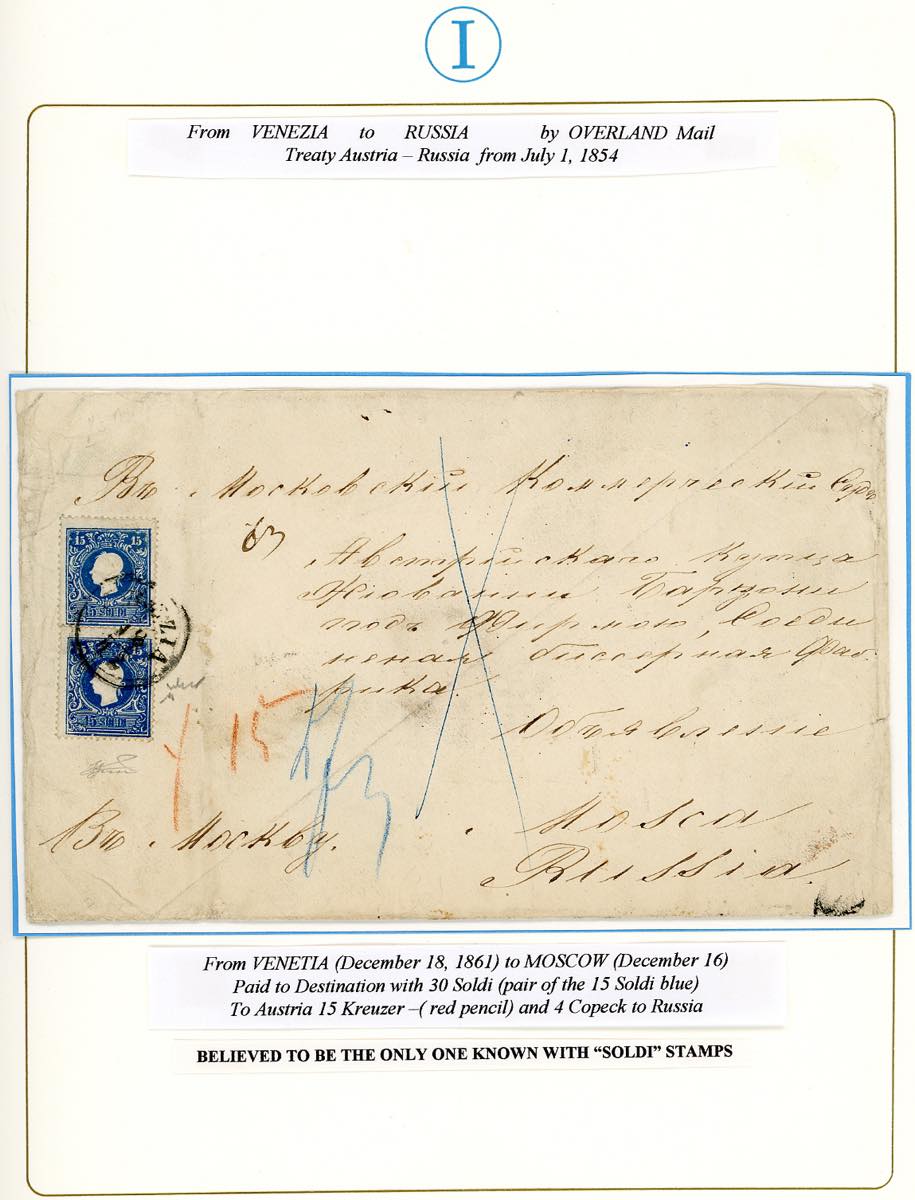 I
From VENEZIA to RUSSIA by OVERLAND Mail
Treaty Austria – Russia from July 1, 1854
Въ Московскій Коммерческій Судъ
Австрійскаго купца
Жіованни Барцони
подъ Фирмою, Соеди
неная биссерная Фаб-
рика.
Объявленіе
15 15
15 SOLDI
15
15 SOLDI
15
Въ Москву.
Mosca
Russia.
From VENETIA (December 18, 1861) to MOSCOW (December 16)
Paid to Destination with 30 Soldi (pair of the 15 Soldi blue)
To Austria 15 Kreuzer –( red pencil) and 4 Copeck to Russia
BELIEVED TO BE THE ONLY ONE KNOWN WITH “SOLDI” STAMPS